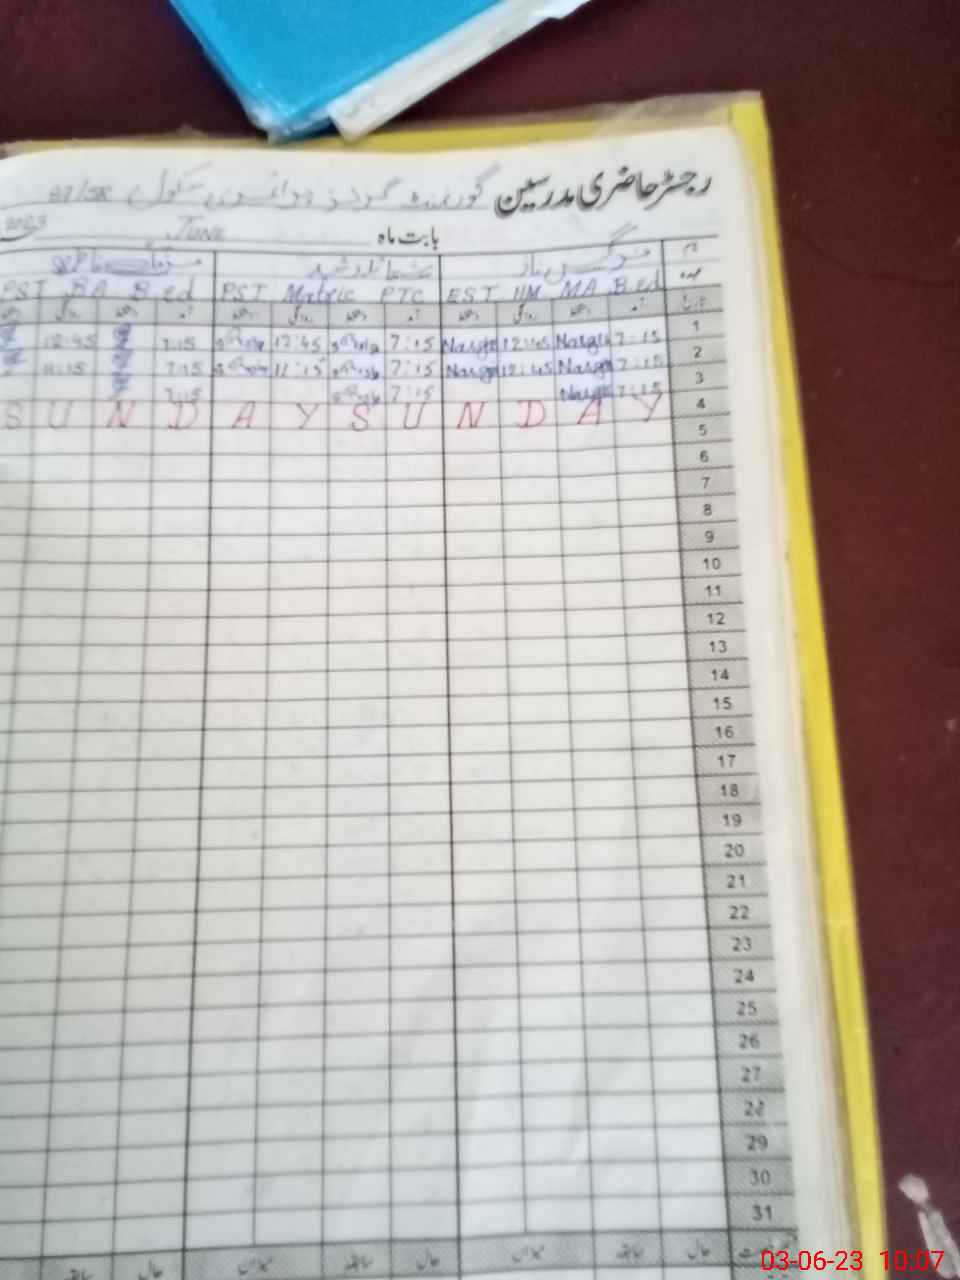 رجسٹر حاضری مدرسین گورنمنٹ گرلز پرائمری سکول 87/5R
بابت ماہ JUNE 2023
نام نرگس ناز
عہدہ EST HM MA B.ed PST Matric PTC PST BA B.ed
تاریخ آمد دستخط روانگی دستخط آمد دستخط روانگی دستخط آمد دستخط روانگی
1 7:15 Nargis 12:45 Nargis 7:15 12:45 7:15 12:45
2 7:15 Nargis 12:45 Nargis 7:15 11:15 7:15 11:15
3 7:15 Nargis 7:15 7:15
4 SUNDAY SUNDAY
5
6
7
8
9
10
11
12
13
14
15
16
17
18
19
20
21
22
23
24
25
26
27
28
29
30
31
حال سابقہ میزان حال سابقہ میزان حال سابقہ
03-06-23 10:07